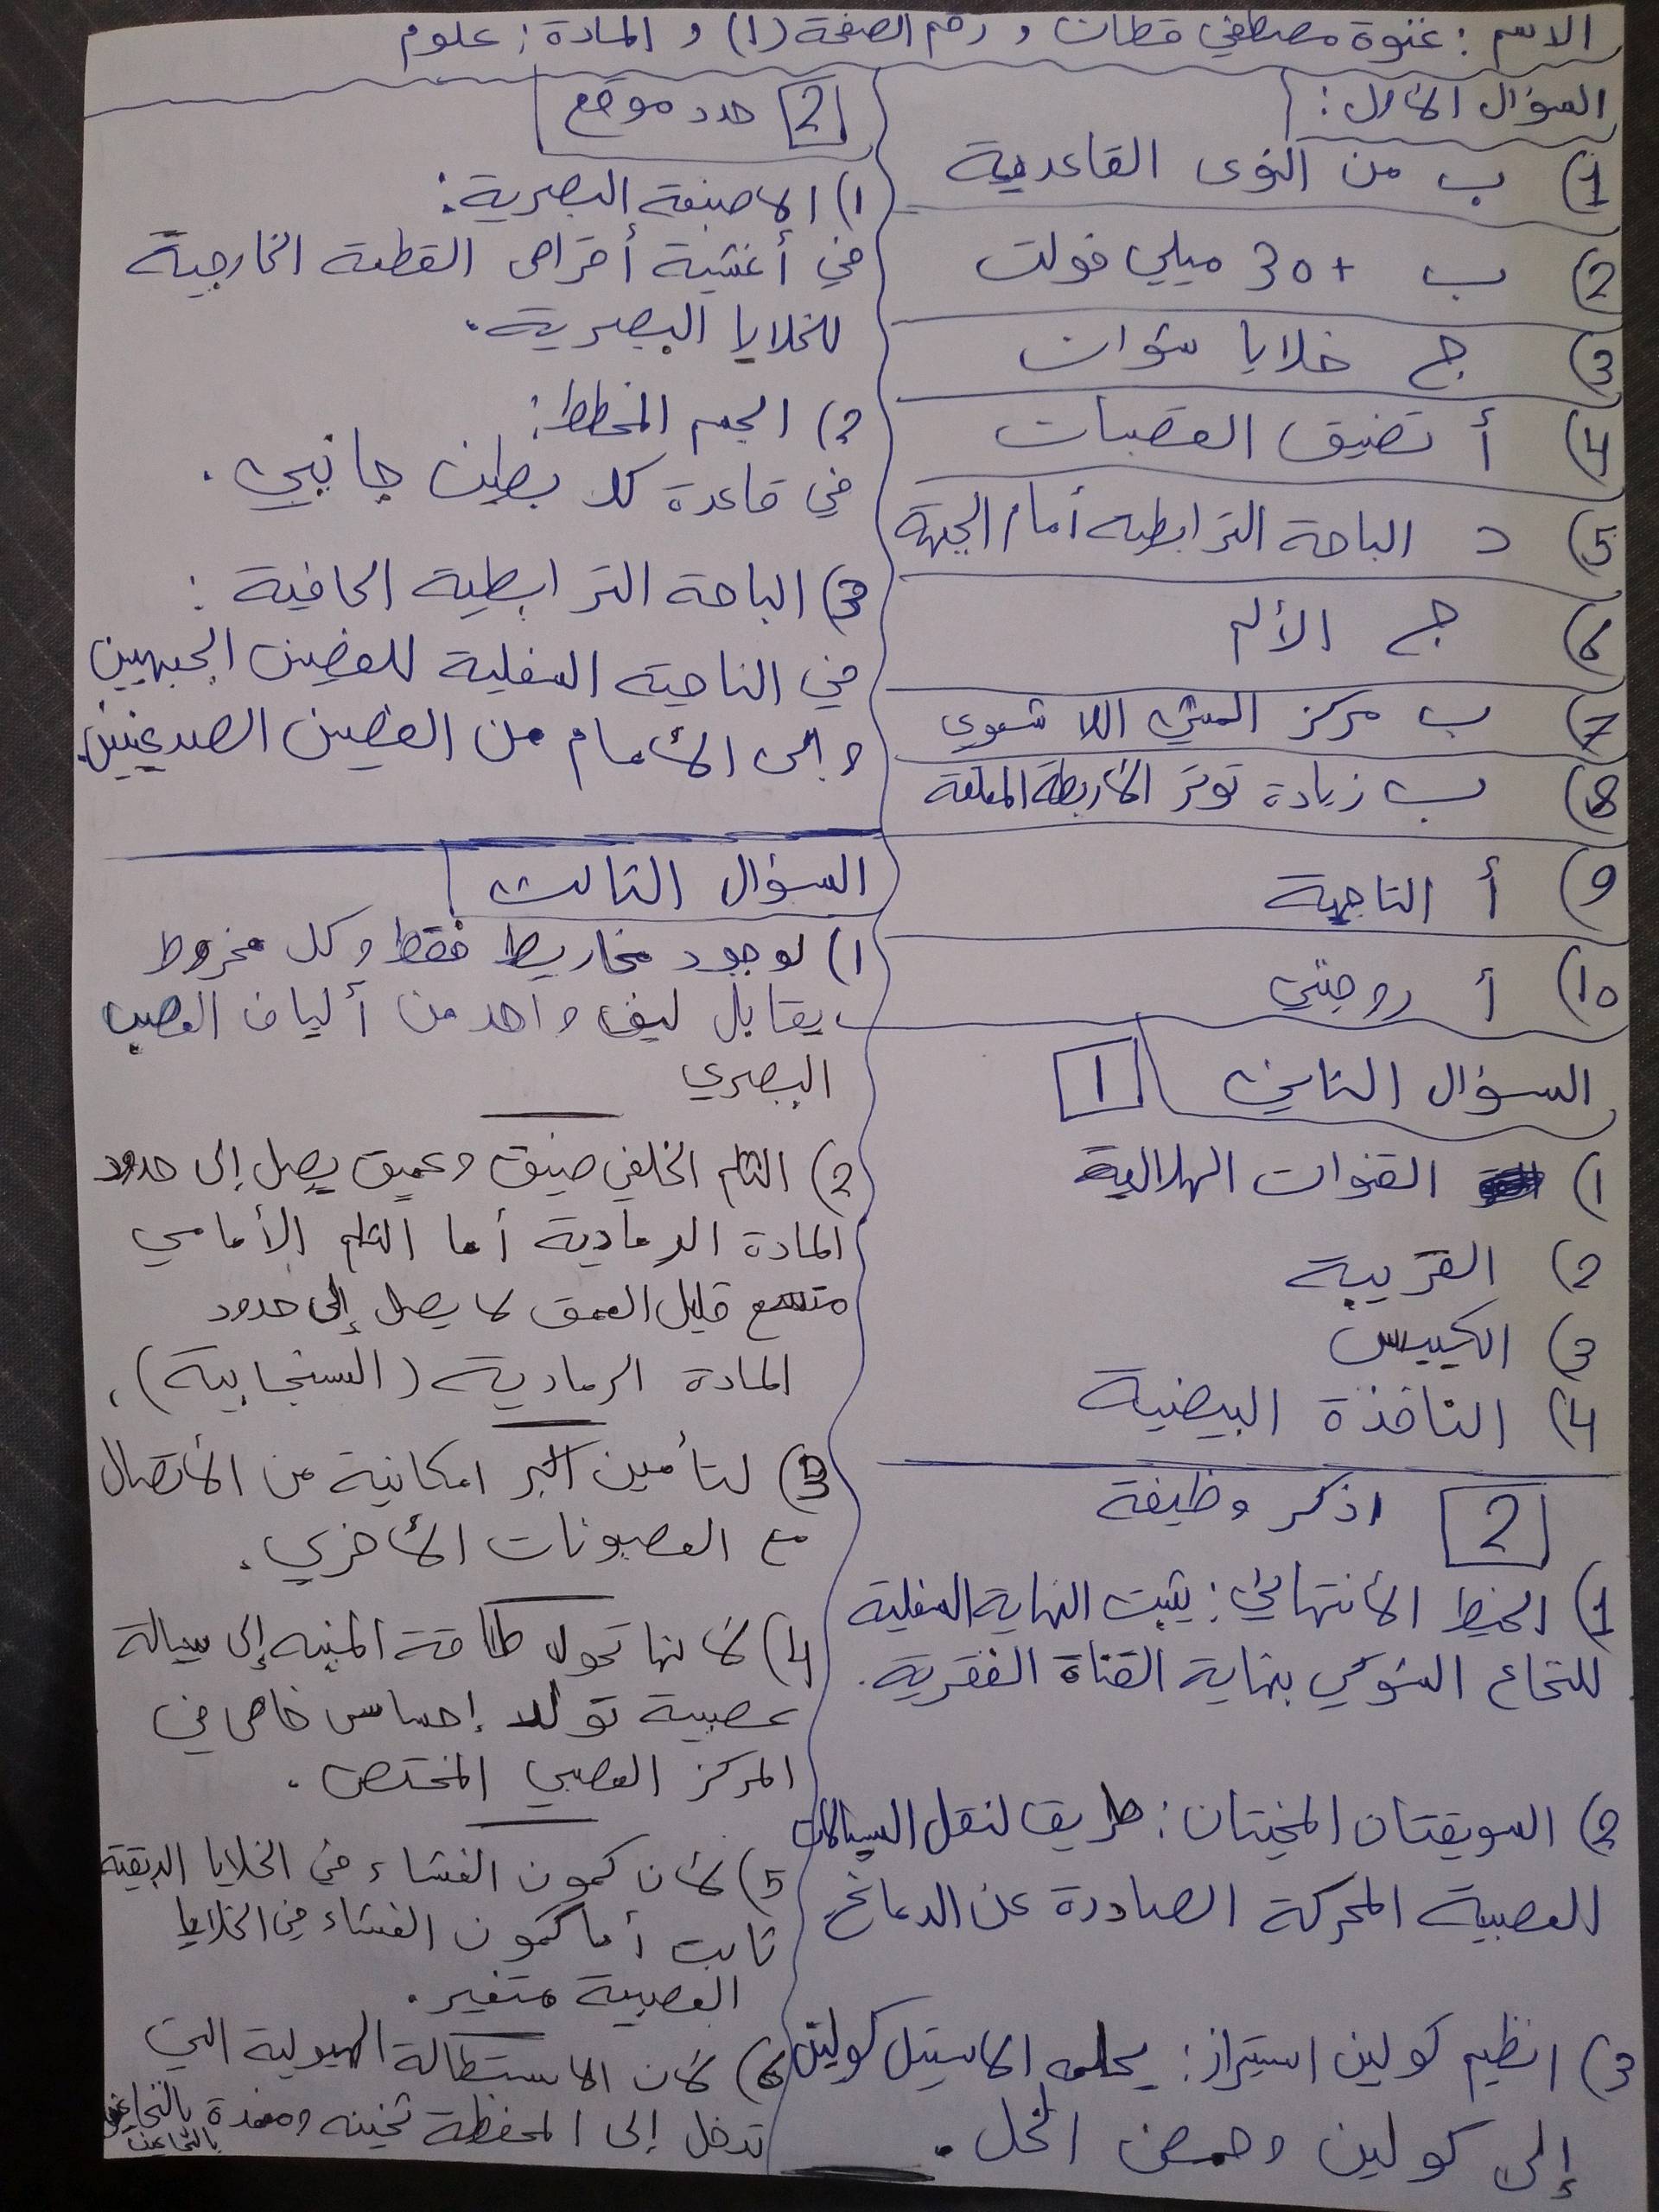 الاسم : غنوة مصطفى قطان و رقم الصفحة (1) و المادة : علوم
السؤال الأول :
1) ب من النوى القاعدية
2) ب +30 ميلي فولت
3) ج خلايا شوان
4) أ تضيق القصبات
5) د الباحة الترابطية أمام الجبهة
6) ج الألم
7) ب مركز المشي اللا شعوري
8) ب زيادة توتر الأربطة المعلقة
9) أ التاجية
10) أ روجني
السؤال الثاني 1
1) القنوات الهلالية
2) القريبة
3) الكييس
4) النافذة البيضية
2 اذكر وظيفة
1) الخيط الانتهائي : يثبت النهاية السفلية
للنخاع الشوكي بنهاية القناة الفقرية .
2) السويقتان المخيتان : طريق لنقل السيالات
العصبية المحركة الصادرة عن الدماغ
3) انظيم كولين استيراز : يحلمه الاستيل كولين
إلى كولين وحمض الخل .
2 حدد موقع
1) الاصبغة البصرية :
في أغشية أقراص القطعة الخارجية
للخلايا البصرية .
2) الجسم المخطط :
في قاعدة كل بطين جانبي .
3) الباحة الترابطية الحافية :
في الناحية السفلية للفصين الجبهيين
و إلى الأمام من الفصين الصدغيين .
السؤال الثالث
1) لوجود مخاريط فقط وكل مخروط
يقابل ليف واحد من ألياف العصب
البصري
2) الثلم الخلفي ضيق وعميق يصل إلى حدود
المادة الرمادية أما الثلم الأمامي
متسع قليل العمق لا يصل إلى حدود
المادة الرمادية (السنجابية) .
3) لتأمين أكبر امكانية من الأتصال
مع العصبونات الأخرى .
4) لأنها تحول طاقة المنبه إلى سيالة
عصبية تولد إحساس خاص في
المركز العصبي المختص .
5) لأن كمون الغشاء في الخلايا الدبقية
ثابت أما كمون الغشاء في الخلايا
العصبية متغير .
6) لأن الاستطالة الهيولية التي
تدخل إلى المحفظة ثخينة ومغمدة بالنخاعين
بالنخاعين